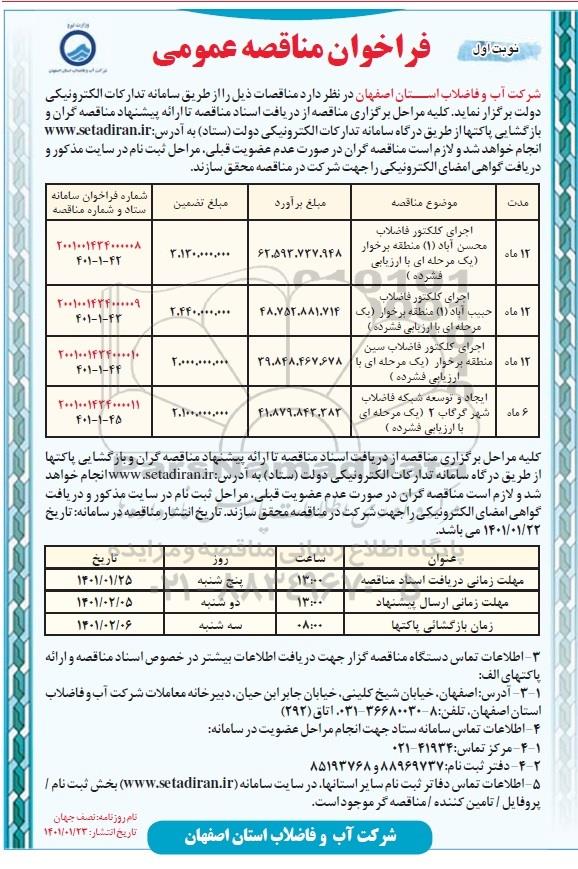 وزارت نیرو
شرکت آب و فاضلاب استان اصفهان
فراخوان مناقصه عمومی
نوبت اول
شرکت آب و فاضلاب استان اصفهان در نظر دارد مناقصات ذیل را از طریق سامانه تدارکات الکترونیکی
دولت برگزار نماید. کلیه مراحل برگزاری مناقصه از دریافت اسناد مناقصه تا ارائه پیشنهاد مناقصه گران و
بازگشایی پاکتها از طریق درگاه سامانه تدارکات الکترونیکی دولت (ستاد) به آدرس: www.setadiran.ir
انجام خواهد شد و لازم است مناقصه گران در صورت عدم عضویت قبلی، مراحل ثبت نام در سایت مذکور و
دریافت گواهی امضای الکترونیکی را جهت شرکت در مناقصه محقق سازند.
مدت | موضوع مناقصه | مبلغ برآورد | مبلغ تضمین | شماره فراخوان سامانه ستاد و شماره مناقصه
۱۲ ماه | اجرای کلکتور فاضلاب محسن آباد (۱) منطقه برخوار (یک مرحله ای با ارزیابی فشرده ) | ۶۲.۵۹۳.۷۳۷.۹۴۸ | ۳.۱۳۰.۰۰۰.۰۰۰ | ۲۰۰۱۰۰۱۴۳۴۰۰۰۰۰۸ ۴۰۱-۱-۴۲
۱۲ ماه | اجرای کلکتور فاضلاب حبیب آباد (۱) منطقه برخوار (یک مرحله ای با ارزیابی فشرده ) | ۴۸.۷۵۲.۸۸۱.۷۱۴ | ۲.۴۴۰.۰۰۰.۰۰۰ | ۲۰۰۱۰۰۱۴۳۴۰۰۰۰۰۹ ۴۰۱-۱-۴۳
۱۲ ماه | اجرای کلکتور فاضلاب سین منطقه برخوار (یک مرحله ای با ارزیابی فشرده ) | ۳۹.۸۴۸.۴۶۷.۶۷۸ | ۲.۰۰۰.۰۰۰.۰۰۰ | ۲۰۰۱۰۰۱۴۳۴۰۰۰۰۱۰ ۴۰۱-۱-۴۴
۶ ماه | ایجاد و توسعه شبکه فاضلاب شهر گرگاب ۲ (یک مرحله ای با ارزیابی فشرده ) | ۴۱.۸۷۹.۸۴۲.۳۸۳ | ۲.۱۰۰.۰۰۰.۰۰۰ | ۲۰۰۱۰۰۱۴۳۴۰۰۰۰۱۱ ۴۰۱-۱-۴۵
کلیه مراحل برگزاری مناقصه از دریافت اسناد مناقصه تا ارائه پیشنهاد مناقصه گران و بازگشایی پاکتها
از طریق درگاه سامانه تدارکات الکترونیکی دولت (ستاد) به آدرس: www.setadiran.ir انجام خواهد
شد و لازم است مناقصه گران در صورت عدم عضویت قبلی، مراحل ثبت نام در سایت مذکور و دریافت
گواهی امضای الکترونیکی را جهت شرکت در مناقصه محقق سازند. تاریخ انتشار مناقصه در سامانه: تاریخ
۱۴۰۱/۰۱/۲۲ می باشد.
عنوان | ساعت | روز | تاریخ
مهلت زمانی دریافت اسناد مناقصه | ۱۳:۰۰ | پنج شنبه | ۱۴۰۱/۰۱/۲۵
مهلت زمانی ارسال پیشنهاد | ۱۳:۰۰ | دو شنبه | ۱۴۰۱/۰۲/۰۵
زمان بازگشائی پاکتها | ۰۸:۰۰ | سه شنبه | ۱۴۰۱/۰۲/۰۶
۳- اطلاعات تماس دستگاه مناقصه گزار جهت دریافت اطلاعات بیشتر در خصوص اسناد مناقصه و ارائه
پاکتهای الف:
۳-۱- آدرس: اصفهان، خیابان شیخ کلینی، خیابان جابر ابن حیان، دبیرخانه معاملات شرکت آب و فاضلاب
استان اصفهان، تلفن: ۸-۳۶۶۸۰۰۳۰-۰۳۱، اتاق (۲۹۲)
۴- اطلاعات تماس سامانه ستاد جهت انجام مراحل عضویت در سامانه:
۴-۱- مرکز تماس: ۴۱۹۳۴-۰۲۱
۴-۲- دفتر ثبت نام: ۸۸۹۶۹۷۳۷ و ۸۵۱۹۳۷۶۸
۵- اطلاعات تماس دفاتر ثبت نام سایر استانها، در سایت سامانه (www.setadiran.ir) بخش ثبت نام /
پروفایل / تامین کننده / مناقصه گر موجود است.
شرکت آب و فاضلاب استان اصفهان
نام روزنامه: نصف جهان
تاریخ انتشار: ۱۴۰۱/۰۱/۲۳
ParsNamadData
پایگاه اطلاع رسانی مناقصه و مزایده
۰۲۱-۸۸۳۴۹۶۷۰-۵